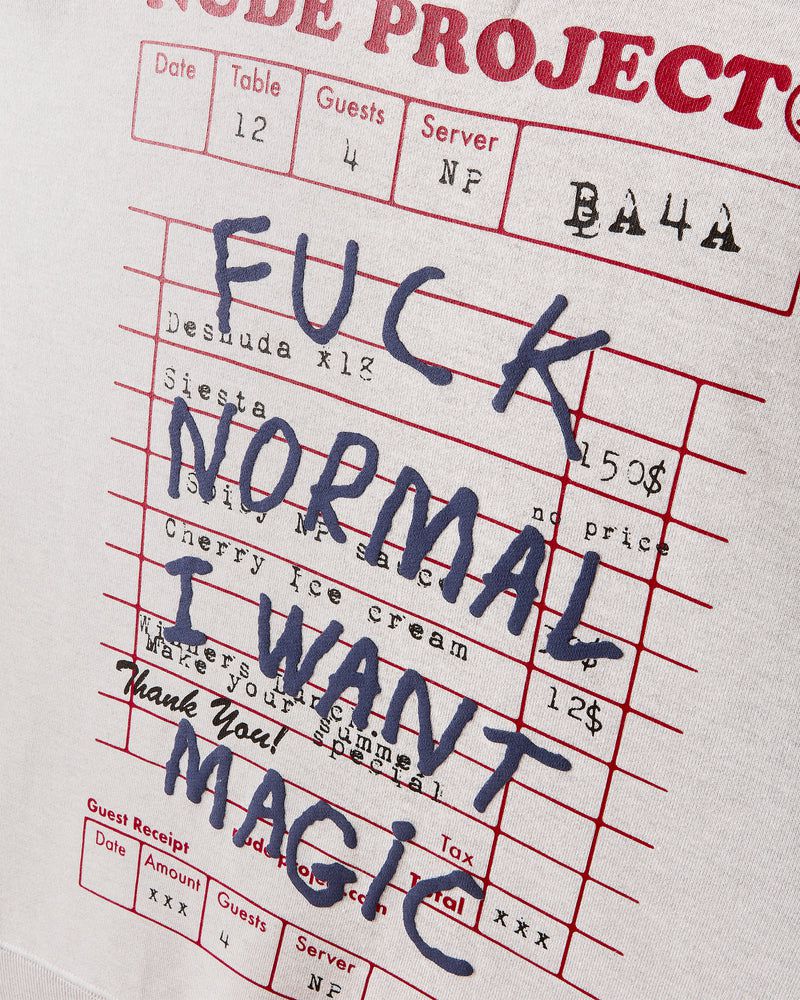 NUDE PROJECT®
Date Table Guests Server
12 4 NP BA4A
FUCK
Desnuda x18 150$
Siesta no price
NORMAL
Spicy NP sauce
Cherry Ice cream 12$
I WANT
Winners Lunch.
Make your summer
special
Thank You!
MAGIC
Tax
Guest Receipt nude-project.com Total xxx
Date Amount Guests Server
xxx 4 NP